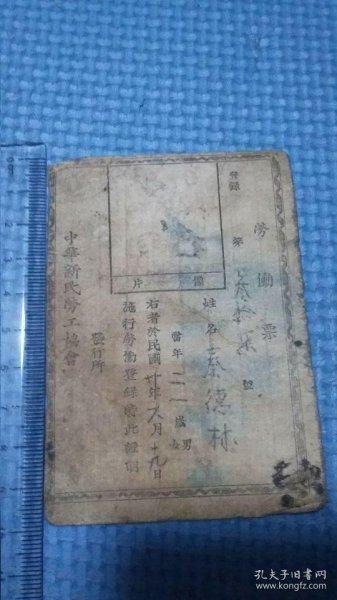 勞働票
登錄 第 號
姓名 蔡德林
當年 二一 歲 男 女
右者於民國卅年九月十九日
施行勞働登錄給此證明
中華新民勞工協會
發行所
備 片
孔夫子旧书网